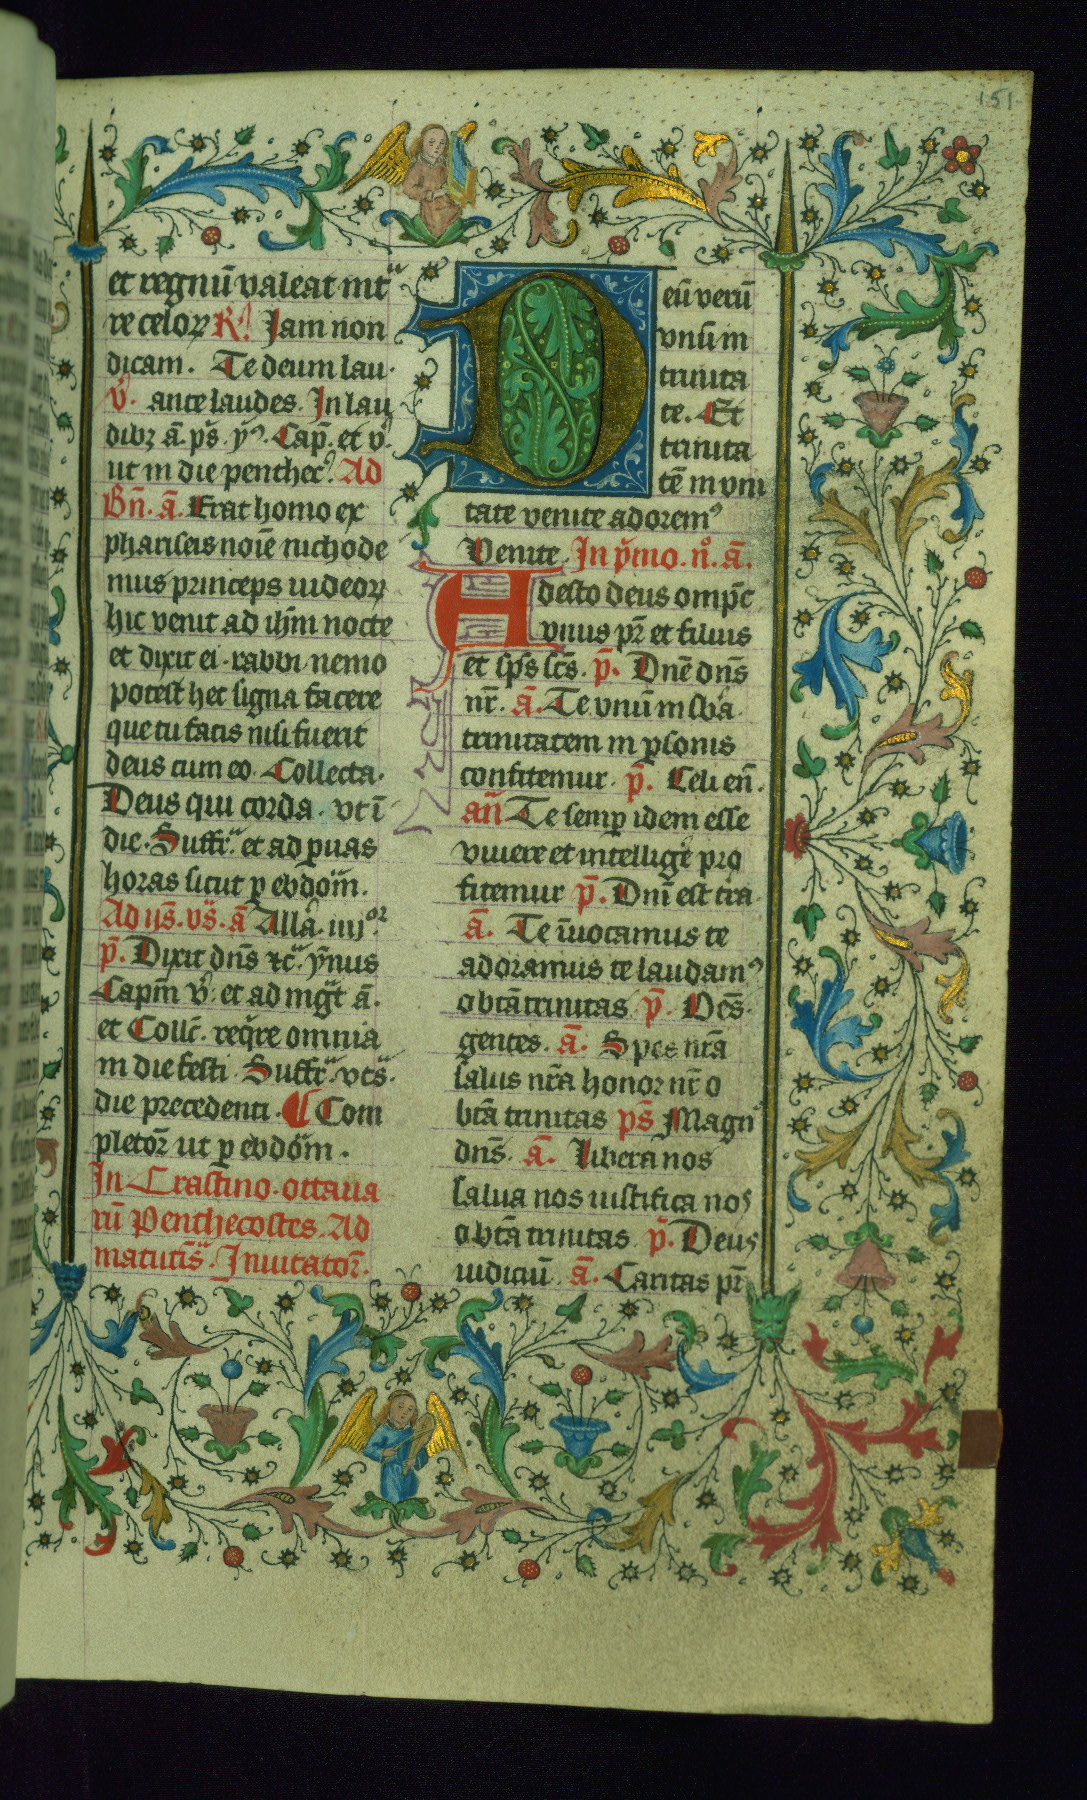 151
et regnū valeat int
re celoꝝ R̷ Jam non
dicam. Te deum lau.
v̓. ante laudes. In lau
dibꝫ ā. p̄s. ẏꝰ. Cap̄. et v̓.
ut in die penthecꝰ. Ad
Bn̄. ā. Erat homo ex
phariseis noīe nichode
mus princeps iudeoꝝ
hic venit ad ih̄m nocte
et dixit ei. rabbi nemo
potest hec signa facere
que tu facis nisi fuerit
deus cum eo. Collecta.
Deus qui corda. vt ī
die. Suffr̄. et ad ꝑuas
horas sicut ꝑ ebdom̄.
Ad ijs. vs̄. ā Allā. iiijor
p̄. Dixit dn̄s ⁊c̄. ẏnus
Capm̄ v̓. et ad mgt̄ ā.
et Coll̄c. req̄re omnia
in die festi. Suffr̄. vts̄.
die precedenti. ¶ Com
pletoꝝ ut ꝑ ebdom̄.
In Crastino. ottaua
rū Penthecostes. Ad
matutīs. Inuitator̄.
Deū verū
vnū in
trinita
te. Et
trinita
tē in vni
tate venite adoremꝰ
Venite. In p̓mo. n̊. ā.
Adesto deus omp̄c
vnus pr̄ et filius
et sp̄s sc̄s. p̄. Dn̄e dn̄s
nr̄. ā. Te vnū in sb̄a
trinitatem in ꝑsonis
confitemur. p̄. Celi en̄.
an̄ Te semꝑ idem esse
viuere et intellige̓ pro
fitemur p̄. Dn̄i est t̄ra
ā. Te īuocamus te
adoramus te laudamꝰ
o bt̄ā trinitas. p̄. Des̄.
gentes. ā. Spes nr̄a
salus nr̄a honor nr̄ o
bt̄ā trinitas ps̄ Magn̄
dn̄s. ā. Libera nos
salua nos iustifica nos
o bt̄ā trinitas p̄. Deus
iudiciū. ā. Caritas pr̄